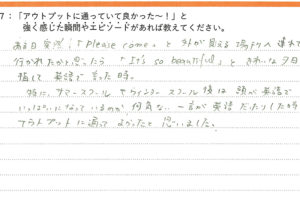 7：「アウトプットに通っていて良かった～！」と
強く感じた瞬間やエピソードがあれば教えてください。
ある日突然「Please come」と外が見える場所に連れて
行かれたかと思ったら「It's so beautiful」ときれいな夕日
指して英語で言った時。
特に、サマースクールやウィンタースクール後は頭が英語で
いっぱいになっているのか何気ない一言が英語だったりした時
アウトプットに通って よかったと思いました。